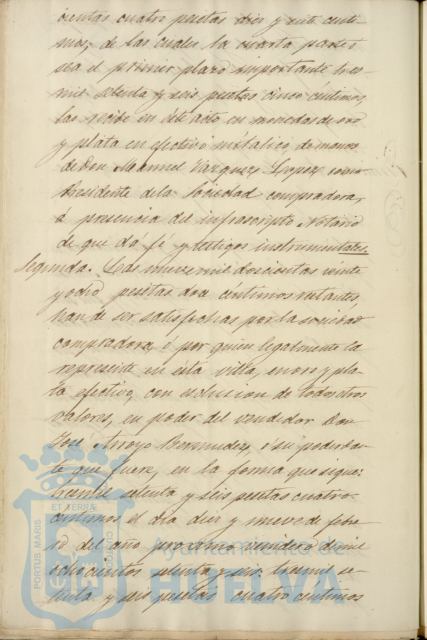 cientas cuatro pesetas diez y siete centi-
mos, de las cuales la cuarta parte ó
sea el primer plazo importante tres-
mil setenta y seis pesetas cinco centimos
las recibe en este acto en monedas de oro
y plata en efectivo metálico, de manos
de Don Manuel Vazquez Lopez como
Presidente de la Sociedad compradora,
á presencia del infrascripto Notario
de que dá fé y testigos instrumentales.
Segunda. Las nueve mil doscientas veinte
y ocho pesetas doce céntimos restantes,
han de ser satisfechas por la sociedad
compradora, ó por quien legalmente la
represente en esta villa, en oro y pla-
ta efectivo, con esclusion de todos otros
valores, en poder del vendedor Don
José Arroyo Bermudez, ó su poderdan-
te que fuere, en la forma que sigue:
tresmil setenta y seis pesetas cuatro
centimos el dia diez y nueve de febre-
ro del año procsimo venidero de mil
ochocientos setenta y seis: tresmil se-
tenta y seis pesetas cuatro centimos
PORTUS MARIS
ET TERRÆ
Ayuntamiento de
HUELVA